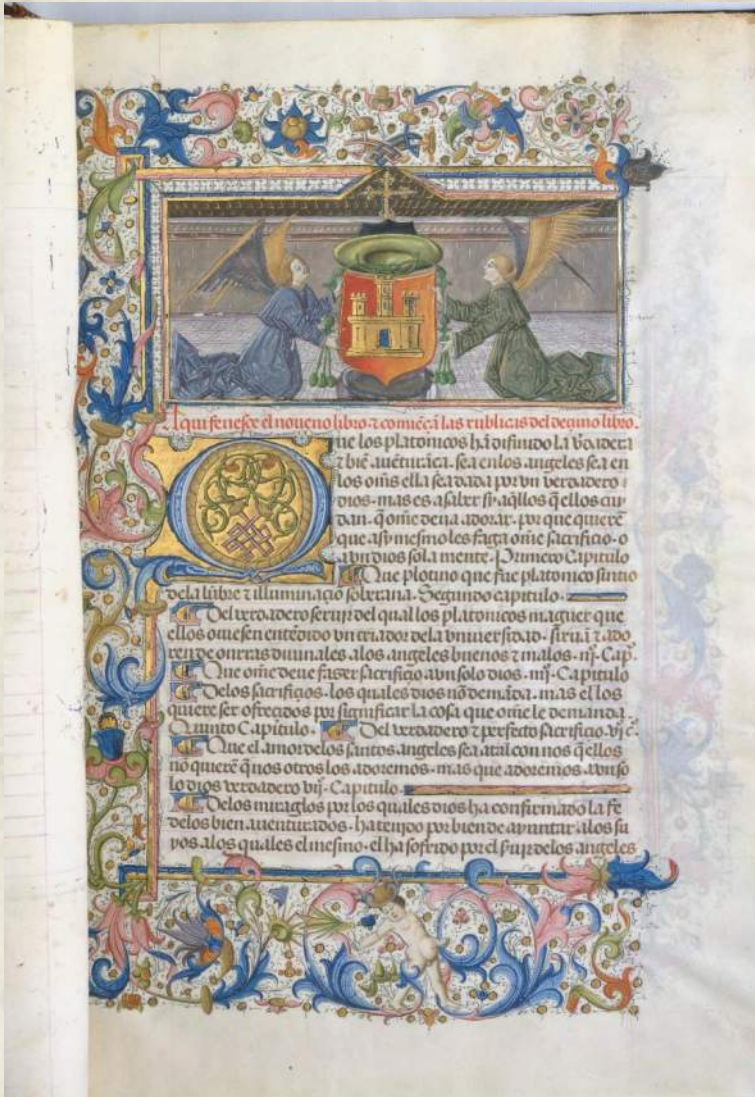 Aqui fenesce el noueno libro ⁊ comiẽçã las rublicas del deçimo libro.
Que los platonicos hã difinido la vdadera
⁊ biẽ auẽturãça. sea en los angeles sea en
los om̃s ella sea dada por vn verdadero
dios. mas es a saber si aq̃llos q̃ ellos cuy
dan. q̃ om̃e deua adorar. por que quierẽ
que asy mesmo les faga om̃e sacrifiçio. o
a vn dios sola mente. Primero Capitulo
Que plotino que fue platonico sintio
de la lũbre ⁊ illuminaçio soberana. Segundo capitulo.
Del verdadero seruir del qual los platonicos maguer que
ellos ouiesen entẽdido vn criador dela vniuersidad. siruã ⁊ ado
ren de onrras diuinales. alos angeles buenos ⁊ malos. iij. Cap.
Que om̃e deue faser sacrifiçio a vn solo dios. iiij. Capitulo
Delos sacrifiçios. los quales dios nõ demãda. mas el los
quiere ser ofreçidos por significar la cosa que om̃e le demanda
Quinto Capitulo. Del verdadero ⁊ perfecto sacrifiçio. vj c.
Que el amor delos santos angeles sea atal con nos q̃ ellos
nõ quierẽ q̃ nos otros los adoremos. mas que adoremos. a vn so
lo dios verdadero vij. Capitulo.
Delos miraglos por los quales dios ha confirmado la fe
delos bien auenturados. ha tenido por bien de ayuntar alos su
yos. alos quales el mesmo. el ha sofrido por el seruir delos angeles